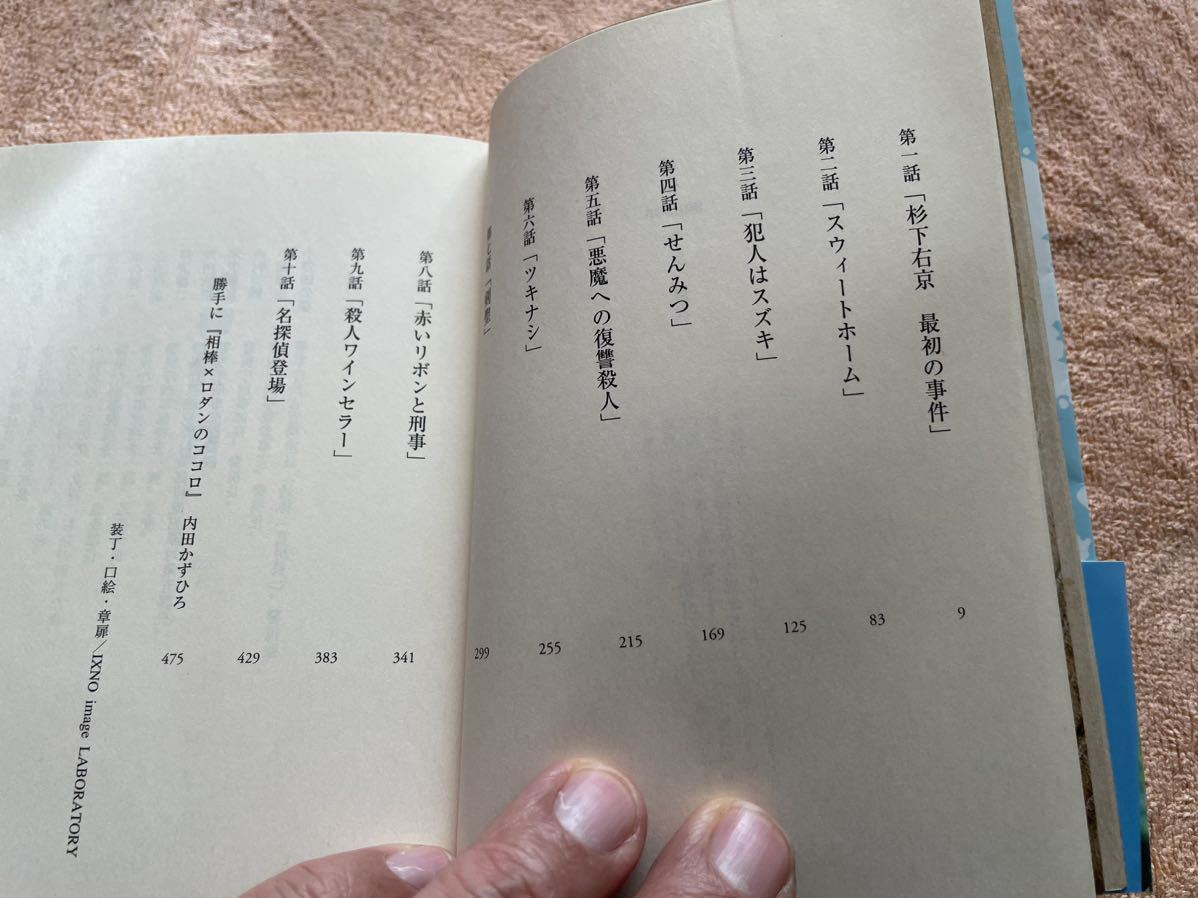 第一話「杉下右京　最初の事件」 9
第二話「スウィートホーム」 83
第三話「犯人はスズキ」 125
第四話「せんみつ」 169
第五話「悪魔への復讐殺人」 215
第六話「ツキナシ」 255
第七話「 299
第八話「赤いリボンと刑事」 341
第九話「殺人ワインセラー」 383
第十話「名探偵登場」 429
勝手に『相棒×ロダンのココロ』　内田かずひろ 475
装丁・口絵・章扉／IXNO image LABORATORY